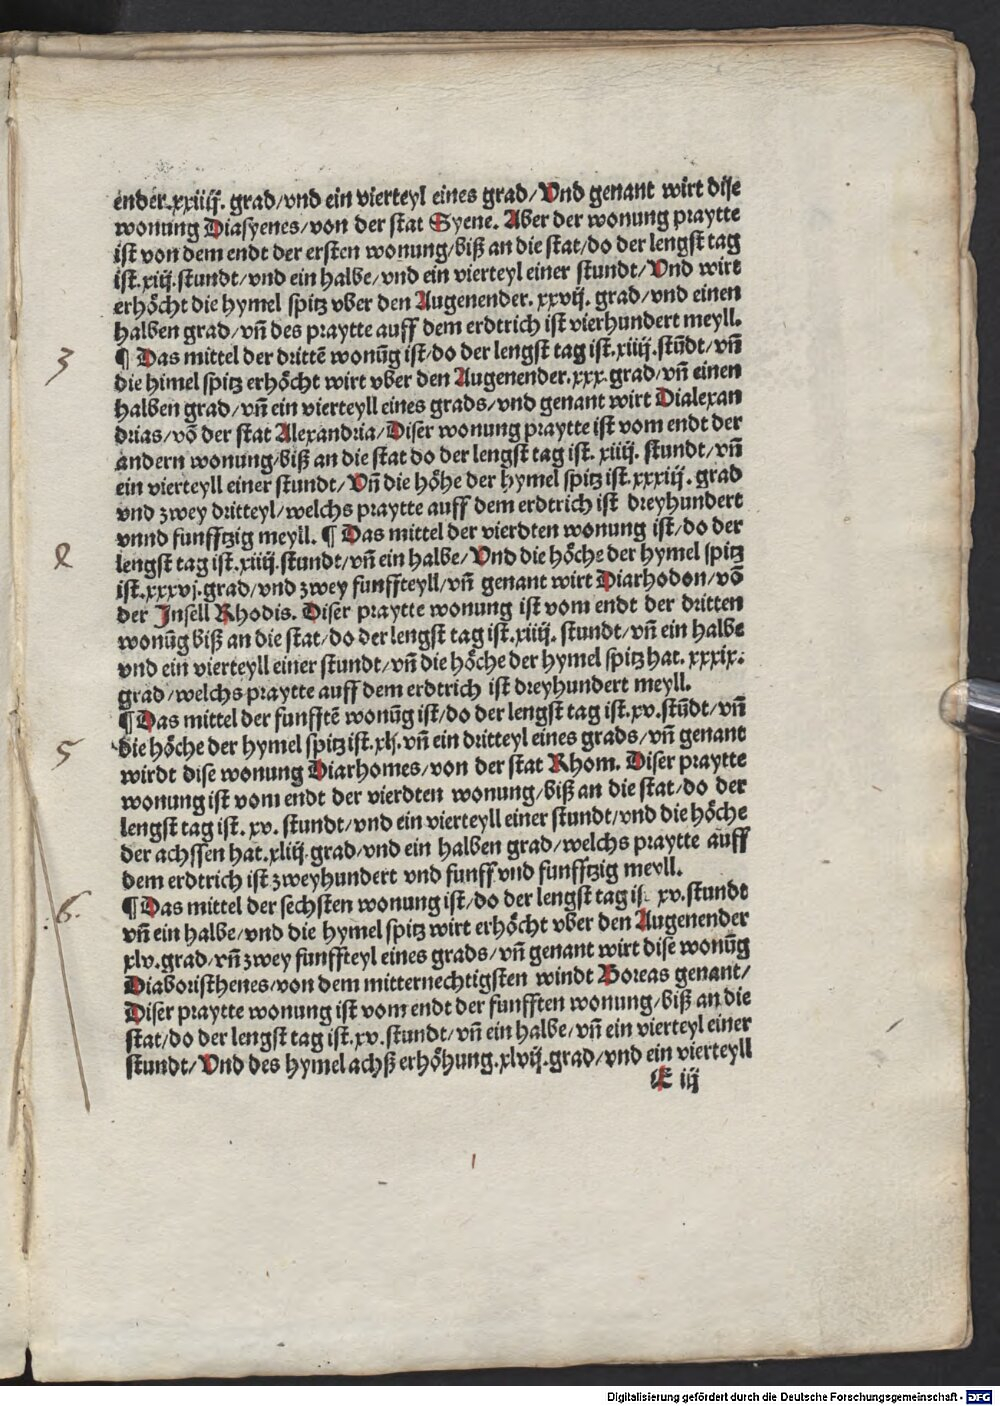 ender.xxiiij. grad/vnd ein vierteyl eines grad/Vnd genant wirt dise
wonung Diasyenes/von der stat Syene. Aber der wonung praytte
ist von dem endt der ersten wonung/biß an die stat/do der lengst tag
ist.xiij.stundt/vnd ein halbe/vnd ein vierteyl einer stundt/Vnd wirt
erhöcht die hymel spitz vber den Augenender.xxvij. grad/vnd einen
halben grad/vñ des praytte auff dem erdtrich ist vierhundert meyll.
3
¶ Das mittel der drittẽ wonũg ist/do der lengst tag ist.xiiij.stũdt/vñ
die himel spitz erhöcht wirt vber den Augenender.xxx.grad/vñ einen
halben grad/vñ ein vierteyll eines grads/vnd genant wirt Dialexan
drias/võ der stat Alexandria/Diser wonung praytte ist vom endt der
andern wonung/biß an die stat do der lengst tag ist. xiiij. stundt/vñ
ein vierteyll einer stundt/Vñ die höhe der hymel spitz ist.xxxiij. grad
vnd zwey dritteyl/welchs praytte auff dem erdtrich ist dreyhundert
vnnd funfftzig meyll. ¶ Das mittel der vierdten wonung ist/do der
lengst tag ist.xiiij.stundt/vñ ein halbe/Vnd die höche der hymel spitz
ist.xxxvj.grad/vnd zwey funffteyll/vñ genant wirt Diarhodon/võ
der Jnsell Rhodis. Diser praytte wonung ist vom endt der dritten
wonũg biß an die stat/do der lengst tag ist.xiiij. stundt/vñ ein halbe
vnd ein vierteyll einer stundt/vñ die höche der hymel spitz hat. xxxix.
grad/welchs praytte auff dem erdtrich ist dreyhundert meyll.
5
¶ Das mittel der funfftẽ wonũg ist/do der lengst tag ist.xv.stũdt/vñ
die höche der hymel spitz ist.xlj.vñ ein dritteyl eines grads/vñ genant
wirdt dise wonung Diarhomes/von der stat Rhom. Diser praytte
wonung ist vom endt der vierdten wonung/biß an die stat/do der
lengst tag ist. xv. stundt/vnd ein vierteyll einer stundt/vnd die höche
der achssen hat.xliij.grad/vnd ein halben grad/welchs praytte auff
dem erdtrich ist zweyhundert vnd funff vnd funfftzig meyll.
6.
¶ Das mittel der sechsten wonung ist/do der lengst tag is xv.stundt
vñ ein halbe/vnd die hymel spitz wirt erhöcht vber den Augenender
xlv.grad/vñ zwey funffteyl eines grads/vñ genant wirt dise wonũg
Diaboristhenes/von dem mitternechtigsten windt Boreas genant/
Diser praytte wonung ist vom endt der funfften wonung/biß an die
stat/do der lengst tag ist.xv.stundt/vñ ein halbe/vñ ein vierteyl einer
stundt/Vnd des hymel achß erhöhung.xlvij.grad/vnd ein vierteyll
E iij
Digitalisierung gefördert durch die Deutsche Forschungsgemeinschaft - DFG